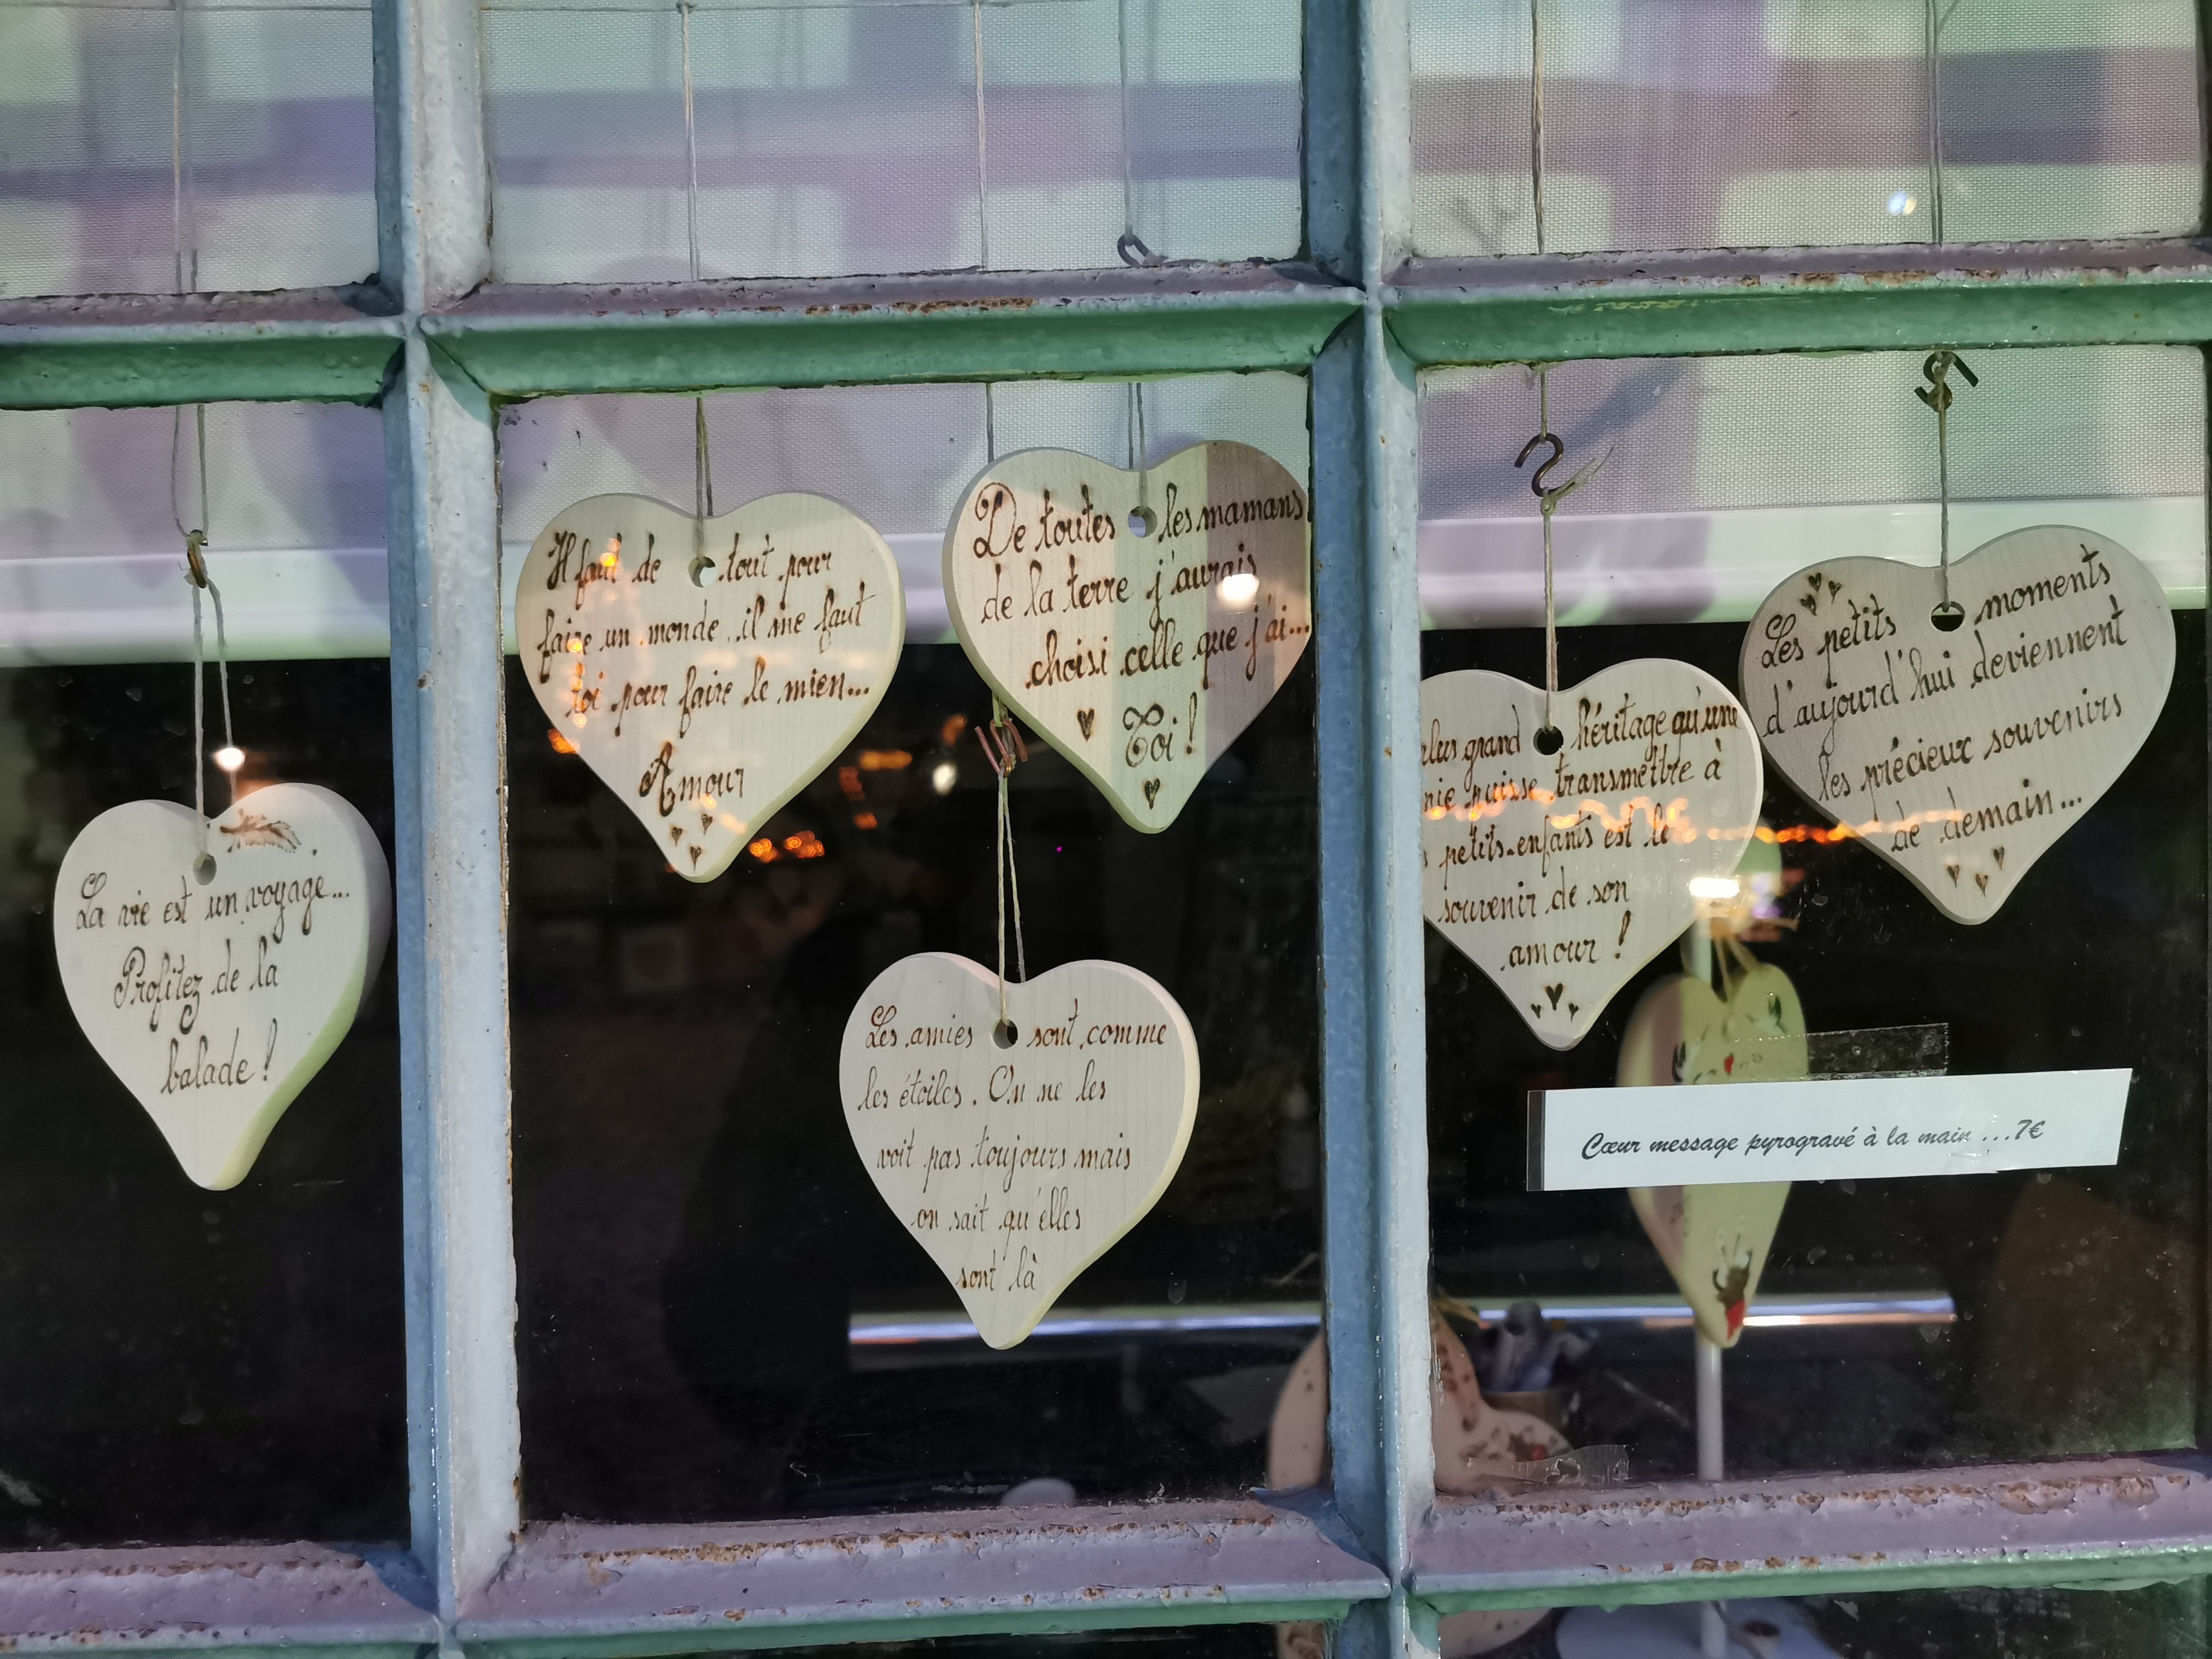 La vie est un voyage...
Profitez de la
balade !
Il faut de tout pour
faire un monde, il me faut
toi pour faire le mien...
Amour
De toutes les mamans
de la terre j'aurais
choisi celle que j'ai...
Toi !
Les amies sont comme
les étoiles. On ne les
voit pas toujours mais
on sait qu'elles
sont là
plus grand héritage qu'une
puisse transmettre à
petits-enfants est le
souvenir de son
amour !
Les petits moments
d'aujourd'hui deviennent
les précieux souvenirs
de demain...
Cœur message pyrogravé à la main ...7€